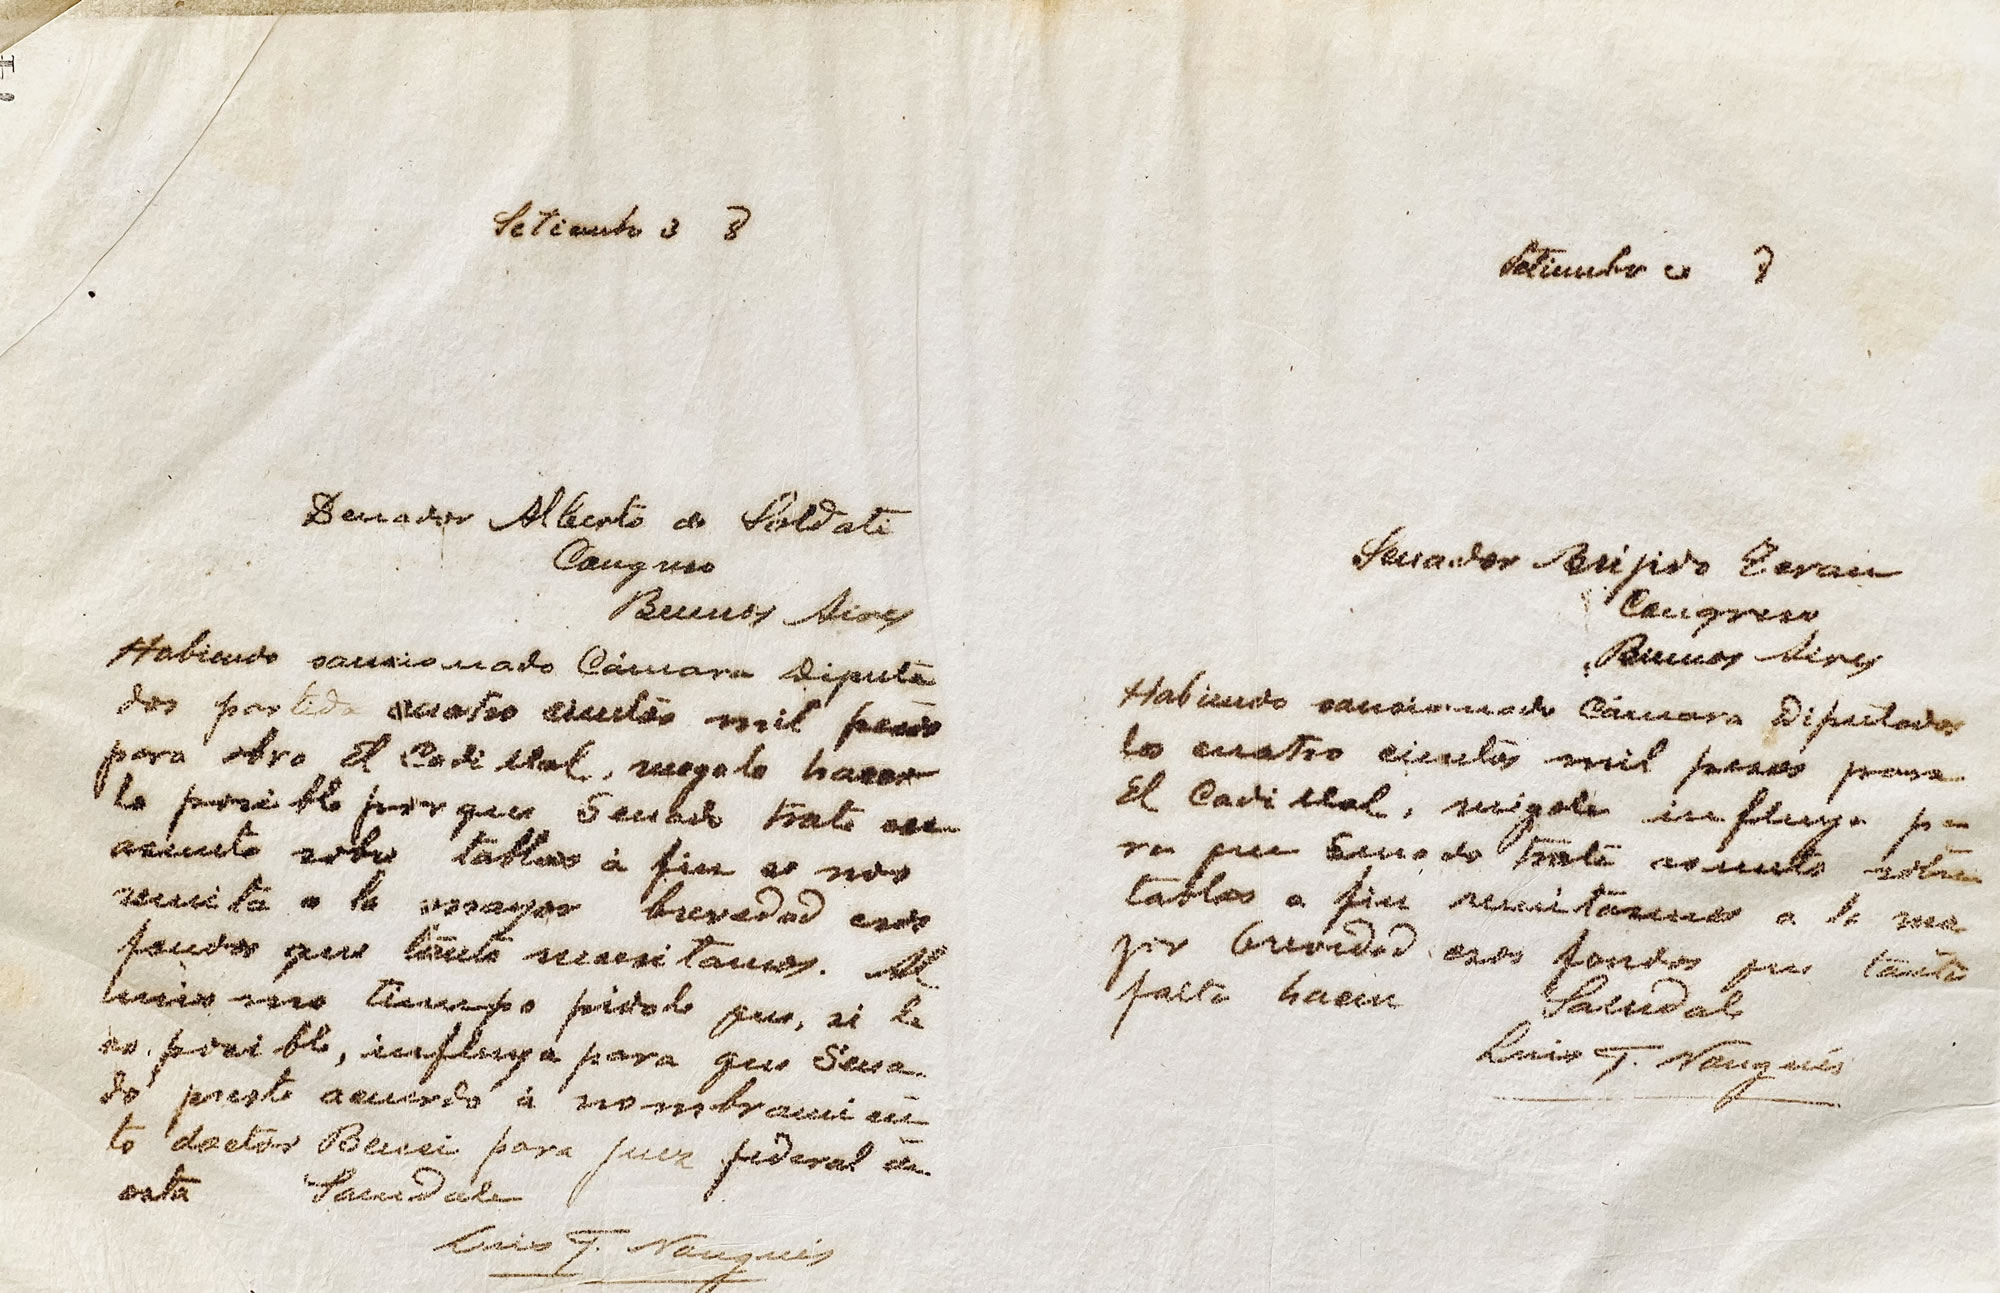 Setiembre 3 8
Senador Alberto de Soldati
Congreso
Buenos Aires
Habiendo sancionado Cámara Diputa
dos partida cuatro cientos mil pesos
para obra El Cadillal, ruegole hacer
lo posible porque Senado trate ese
asunto sobre tablas à fin se nos
remita a la mayor brevedad esos
fondos que tanto necesitamos. Al
mismo tiempo pidole que, si le
es posible, influya para que Sena
do preste acuerdo à nombramien
to doctor Benci para juez federal en
esta Saludale
Luis F. Nougués
Setiembre 3 8
Senador Brijido Teran
Congreso
Buenos Aires
Habiendo sancionado Cámara Diputados
los cuatro cientos mil pesos para
El Cadillal, ruégole influya pa
ra que Senado trate asunto sobre
tablas a fin remitasenos a la ma
yor brevedad esos fondos que tanta
falta hacen Saludale
Luis F. Nougués